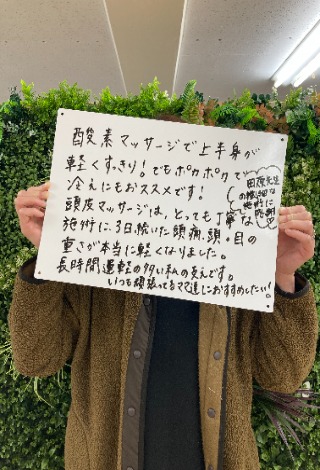 酸素マッサージで上半身が
軽くすっきり！でもポカポカで
冷えにもおススメです！
頭皮マッサージは、とっても丁寧な
施術に、3日続いた頭痛、頭・目の
重さが本当に軽くなりました。
長時間運転の多い私の支えです。
いつも頑張ってるママ達におすすめしたい！
田原先生
の繊細な
施術に
感謝♡